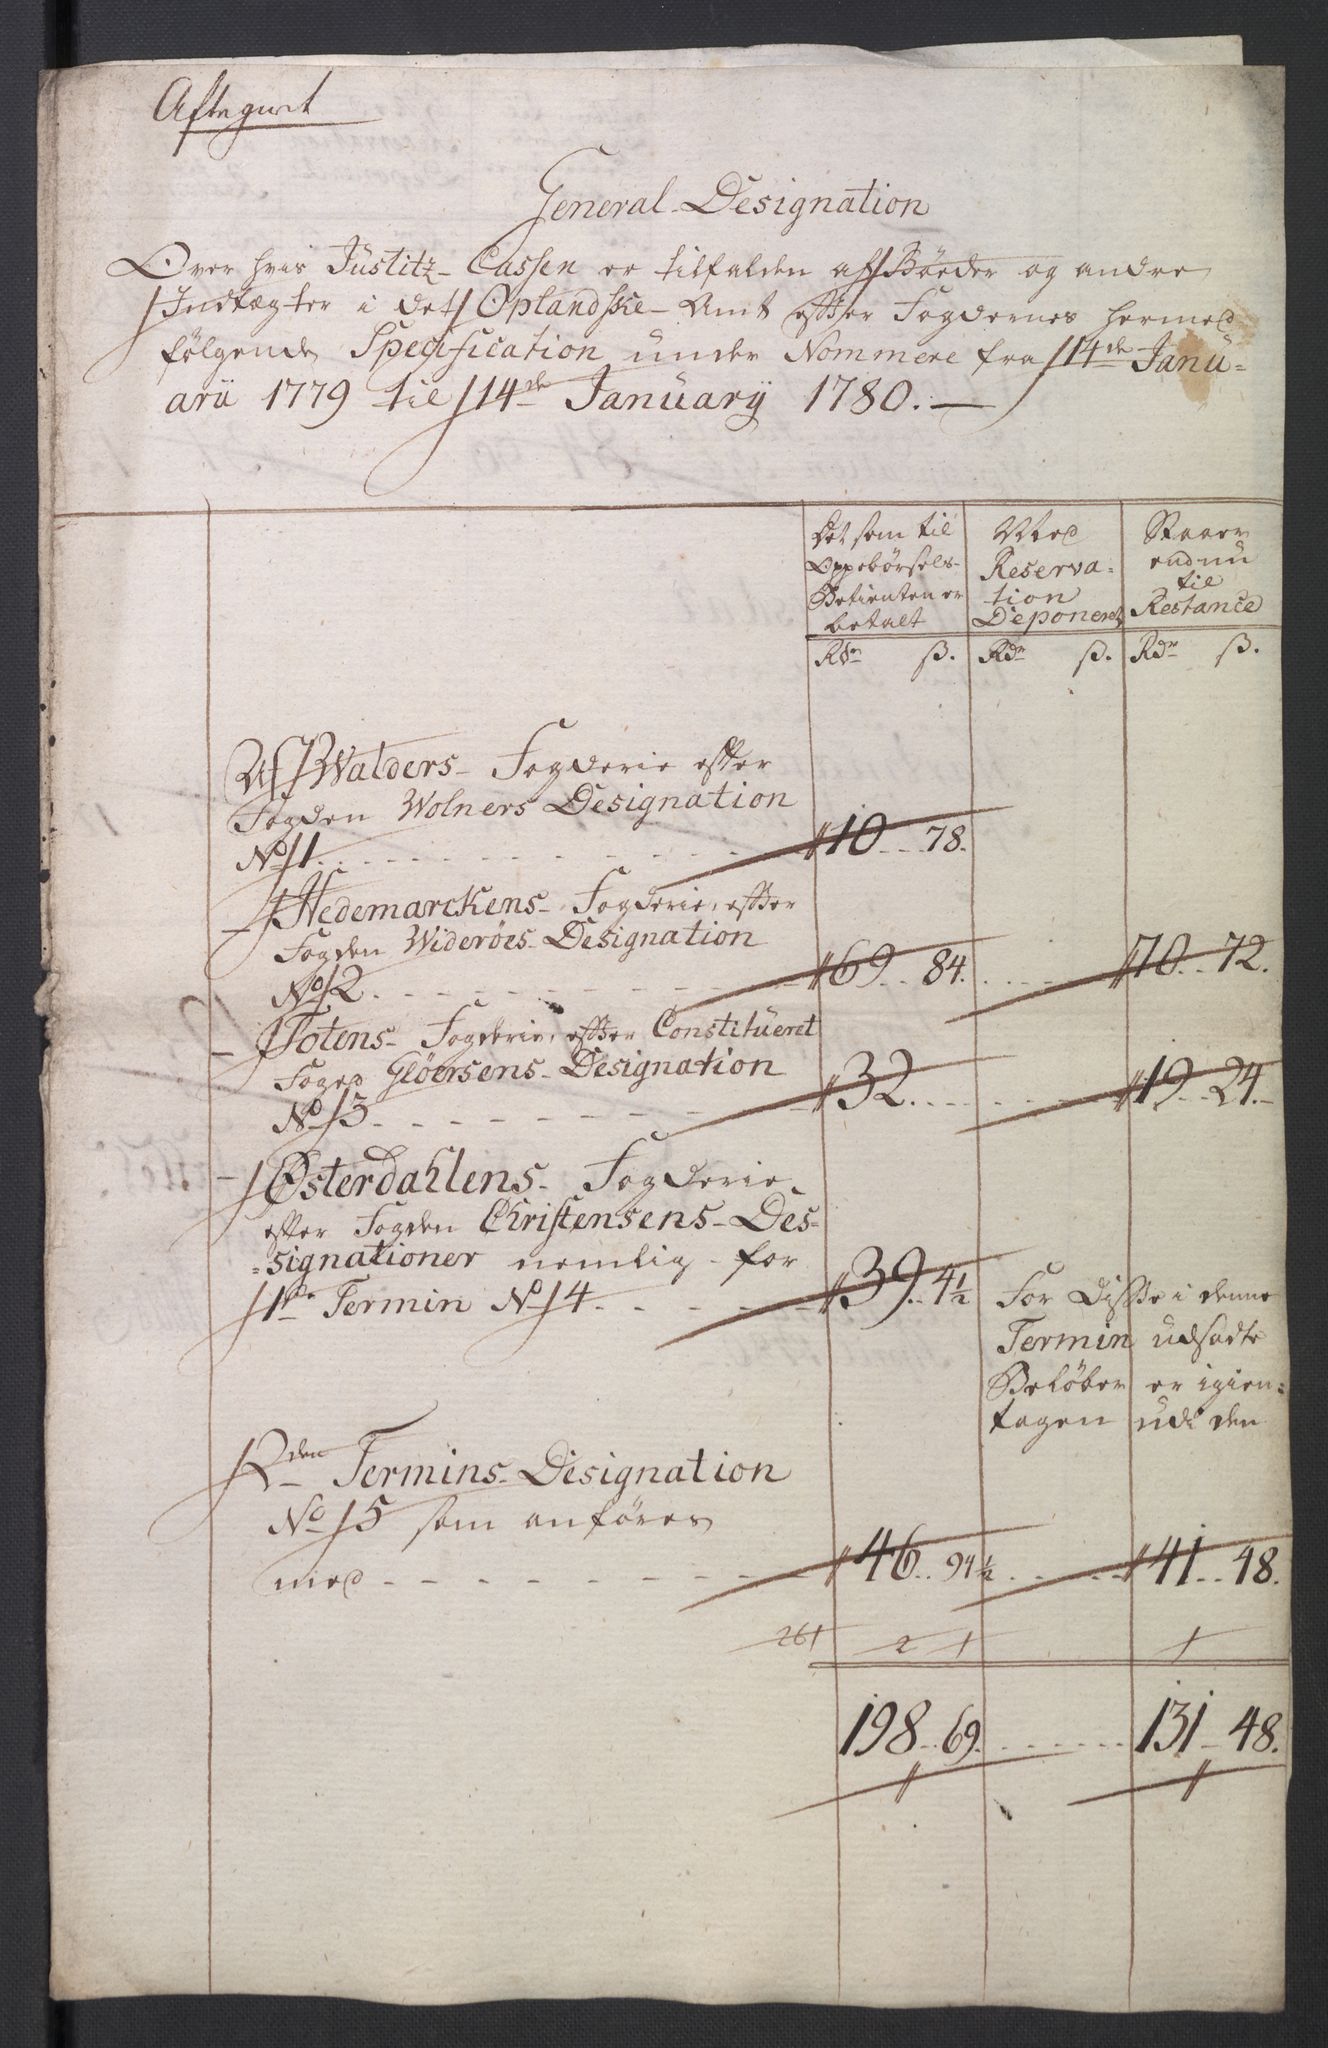 General Designation
Over hvis Justitz-Cassen er tilfalden af Bøeder og andre
Indtægter i det Oplandske Amt efter Fogdernes hermed
følgende Specification under Nommere fra 14de Janu-
arii 1779 til 14de Januarij 1780.
Det som til
Oppebørsels-
Betienten er
betalt
Med
Reserva-
tion
Deponeret
Staaer
endnu
til
Restance
Rdr ß. Rdr ß. Rdr ß.
Af Walders Fogderie efter
Fogden Wolners Designation
No 1. 10 . . 78.
- Hedemarckens Fogderie, efter
Fogden Widerøes Designation
No 2. 69 . . 84. 70 . . 72.
- Totens Fogderie, efter Constitueret
Foged Gløersens Designation
No 3. 32. 19 . . 24.
- Østerdahlens Fogderie
efter Fogden Christensens Des-
signationer nemlig for
1te Termin No 4. 39 . . 4½
For Disse i denne
Termin udsadte
Beløber er igien-
tagen udi den
2den Termins Designation
No 5 som anføres
med 46 . . 94½ 41 . . 48.
261 2 1 1
198 . . 69. 131 - 48.